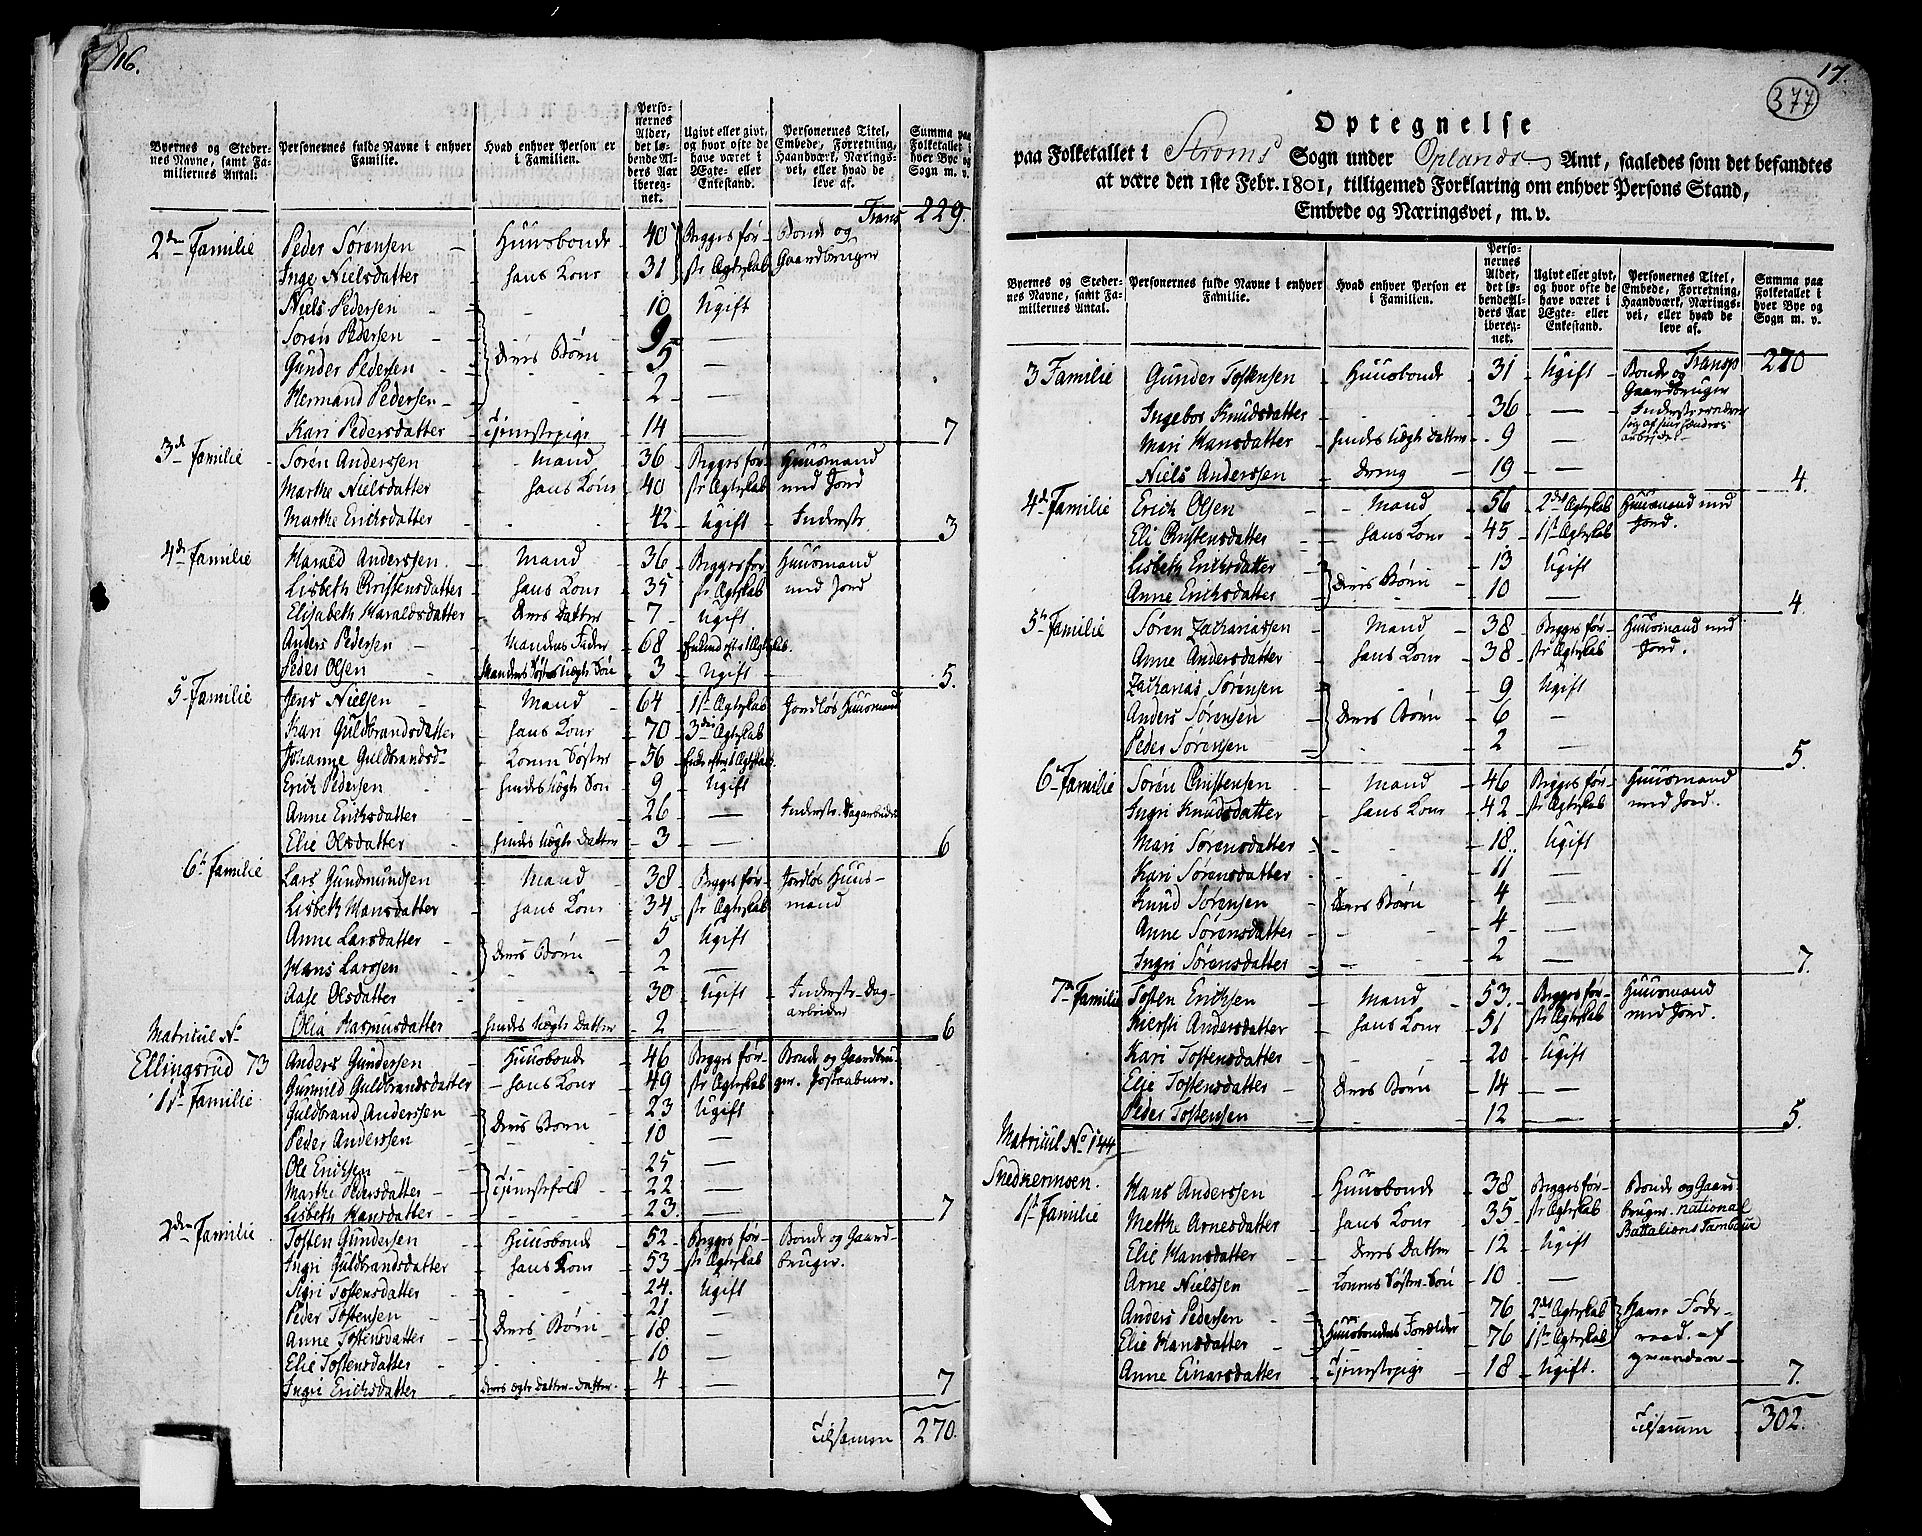 16.
Byernes og Stedernes Navne, samt Familiernes Antal. | Personernes fulde Navne i enhver Familie. | Hvad enhver Person er i Familien. | Personernes Alder, det løbende Alders Aar iberegnet. | Ugivt eller givt, og hvor ofte de have været i Ægte- eller Enkestand. | Personernes Titel, Embede, Forretning, Haandværk, Næringsvei, eller hvad de leve af. | Summa paa Folketallet i hver Bye og Sogn m. v.
Trans 229.
2den Familie | Peder Sørensen | Huusbonde | 40 | Begge i før- | Bonde og
Inge Nielsdatter | hans Kone | 31 | ste Ægteskab | Gaardbruger
Niels Pedersen | 10 | Ugift
Søren Pedersen | 9 | —
Gunder Pedersen | deres Børn | 5 | —
Hermand Pedersen | 2 | —
Kari Pedersdatter | Tjenestepige | 14 | — | 7
3de Familie | Søren Anderssen | Mand | 36 | Begge i før- | Huusmand
Marthe Nielsdatter | hans Kone | 40 | ste Ægteskab | med Jord
Marthe Erichsdatter | 42 | Ugift | Inderste | 3
4de Familie | Harald Anderssen | Mand | 36 | Begge i før- | Huusmand
Lisbeth Christensdatter | hans Kone | 35 | ste Ægteskab | med Jord
Elisabeth Haraldsdatter | deres Datter | 7 | Ugift
Anders Pedersen | Mandens Fader | 68 | Enkemand efter 1 Ægteskab.
Peder Olsen | Mandens Søsters Uægte Søn | 3 | Ugift | 5.
5 Familie | Jens Nielsen | Mand | 64 | 1ste Ægteskab | Jordløs Huusmand
Kari Guldbrandsdatter | hans Kone | 70 | 3die Ægteskab
Johanne Guldbrandsd— | Konens Søster | 56 | Enke efter 1 Ægteskab
Erich Pedersen | hendes Uægte Søn | 9 | Ugift
Anne Erichsdatter | 26 | — | Inderste. Dagarbeider
Elie Olsdatter | hendes Uægte Datter | 3 | — | 6
6te Familie | Lars Gundmundsen | Mand | 38 | Begge i før- | Jordløs Huus-
Lisbeth Hansdatter | hans Kone | 34 | ste Ægteskab | mand
Anne Larsdatter | deres Børn | 5 | Ugift
Hans Larssen | 2 | —
Aase Olsdatter | 30 | Ugift | Inderste- Dag-
arbeider
Olia Rasmusdatter | hendes Uægte Datter | 2 | — | 6
Matricul No
Ellingsrud 73 | Anders Gundersen | Huusbonde | 46 | Begge i før- | Bonde og Gaardbru-
Gunnild Guldbrandsdatter | hans Kone | 49 | ste Ægteskab | ger.
1ste Familie | Guldbrand Anderssen | deres Børn | 23 | Ugift
Peder Anderssen | 10 | —
Ole Erichsen | 25 | —
Marthe Pedersdatter | Tjenestefolk | 22 | —
Lisbeth Hansdatter | 23. | — | 7
2den Familie | Tosten Gundersen | Huusbonde | 52 | Begge i før- | Bonde og Gaard-
Ingri Guldbrandsdatter | hans Kone | 53 | ste Ægteskab | bruger.
Sigri Tostensdatter | 24. | Ugift
Peder Tostensen | deres Børn | 21 | —
Anne Tostensdatter | 18. | —
Elie Tostensdatter | 10 | —
Ingri Erichsdatter | deres Uægte Datter-Datter. | 4 | — | 7
Tilsamen 270.
17.
377
Optegnelse
paa Folketallet i Strøms Sogn under Oplands Amt, saaledes som det befandtes
at være den 1ste Febr. 1801, tilligemed Forklaring om enhver Persons Stand,
Embede og Næringsvei, m. v.
Byernes og Stedernes Navne, samt Familiernes Antal. | Personernes fulde Navne i enhver Familie. | Hvad enhver Person er i Familien. | Personernes Alder, det løbende Alders Aar iberegnet. | Ugivt eller givt, og hvor ofte de have været i Ægte- eller Enkestand. | Personernes Titel, Embede, Forretning, Haandværk, Næringsvei, eller hvad de leve af. | Summa paa Folketallet i hver Bye og Sogn m. v.
Transp 270
3 Familie | Gunder Tostensen | Huusbonde | 31 | Ugift | Bonde og
Gaardbruger
Ingebor Knudsdatter | 36 | — | Inderste ernærer
sig af sine hænders
Mari Hansdatter | hendes Uægte Datter | 9 | — | arbeide
Niels Anderssen | dreng | 19 | — | 4.
4de Familie | Erich Olsen | Mand | 56 | 2det Ægteskab | Huusmand med
Eli Christensdatter | hans Kone | 45 | 1ste Ægteskab | Jord.
Lisbeth Erichsdatter | deres Børn | 13 | Ugift
Anne Erichsdatter | 10 | — | 4.
5te Familie | Søren Zachariassen | Mand | 38 | Begge i før- | Huusmand med
Anne Andersdatter | hans Kone | 38 | ste Ægteskab | Jord.
Zacharias Sørensen | 9 | Ugift
Anders Sørensen | deres Børn | 6 | —
Peder Sørensen | 2 | — | 5.
6te Familie | Søren Christensen | Mand | 46 | Begge i før- | Huusmand
Ingri Knudsdatter | hans Kone | 42 | ste Ægteskab | med Jord.
Mari Sørensdatter | 18. | Ugift
Kari Sørensdatter | 11 | —
Knud Sørensen | deres Børn | 4 | —
Anne Sørensdatter | 4 | —
Ingri Sørensdatter | 2 | — | 7.
7de Familie | Tosten Erichsen | Mand | 53. | Begge i før- | Huusmand
Kiersti Andersdatter | hans Kone | 51 | ste Ægteskab | med Jord.
Kari Tostensdatter | 20 | Ugift
Elie Tostensdatter | deres Børn | 14 | —
Peder Tostensen | 12 | — | 5.
Matricul No 144
Snedkermoen. | Hans Anderssen | Huusbonde | 38 | Begge i før- | Bonde og Gaard-
1ste Familie | Metthe Arnesdatter | hans Kone | 35 | ste Ægteskab | bruger. national
Battalions Tambour
Elie Hansdatter | deres Datter | 12 | Ugift
Arne Nielssen | Konens Søster-Søn | 10 | —
Anders Pedersen | Huusbondens Forælder | 76 | 2det Ægteskab | Have Føde-
Elie Hansdatter | 76 | 1ste Ægteskab | raad af
Anne Einarsdatter | Tjenestepige | 18 | Ugift. | gaarden | 7.
Tilsamm 302.